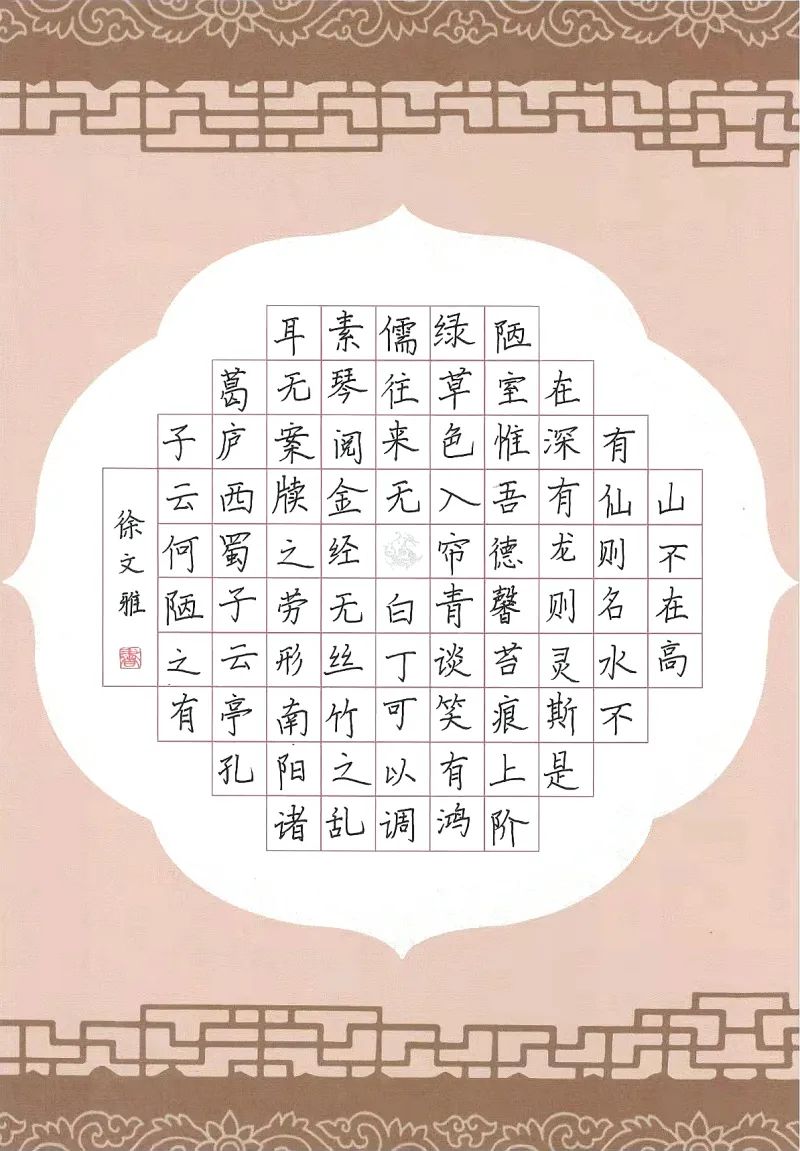 山不在高
有仙则名水不
在深有龙则灵斯是
陋室惟吾德馨苔痕上阶
绿草色入帘青谈笑有鸿
儒往来无白丁可以调
素琴阅金经无丝竹之乱
耳无案牍之劳形南阳诸
葛庐西蜀子云亭孔
子云何陋之有
徐文雅